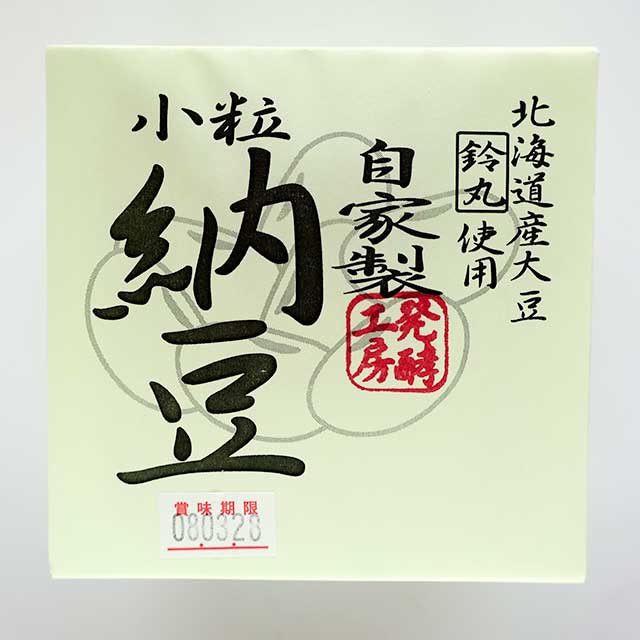 北海道産大豆
鈴丸使用
自家製
発酵
工房
小粒
納豆
賞味期限
080328